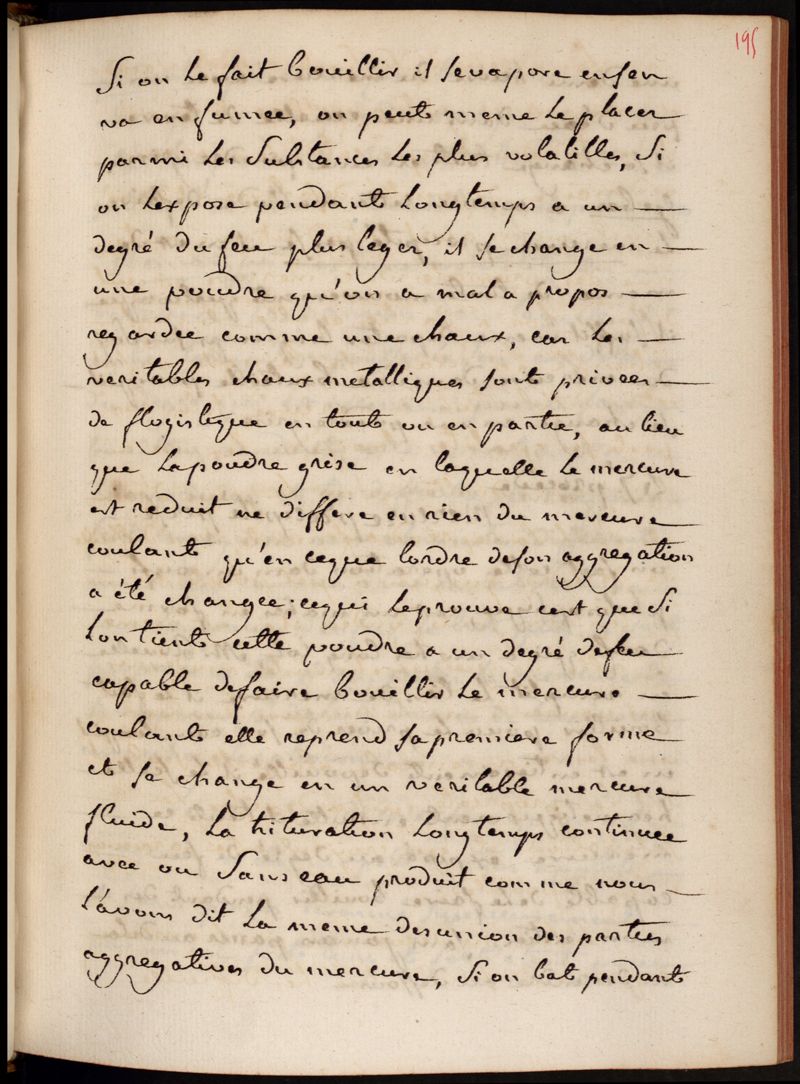 195
Si on le fait bouillir il sevapore ensen
va en fumee, on peut meme le placer
parmi les Substances les plus volatilles, Si
on lexpose pendant longtemps a un
degré du feu plus leger, il se change en
une poudre qu'on a mal a propos
regardee comme une chaux, car les
veritables chaux metalliques sont privees
de flogistique en tout ou en partie, au lieu
que la poudre grise en laquelle le mercure
est reduit ne differe en rien du mercure
coulant qu'en ceque lordre deson aggregation
a été changee; cequi leprouve cest que Si
lon tient cette poudre a un degré defeu
capable defaire bouillir le mercure
coulant elle reprend sa premiere forme
et se change en un veritable mercure
fluide, la trituration longtemps continuee
avec ou Sans eau produit comme nous
l'avons dit la meme desunion des parties
aggregatives du mercure, Si on bat pendant